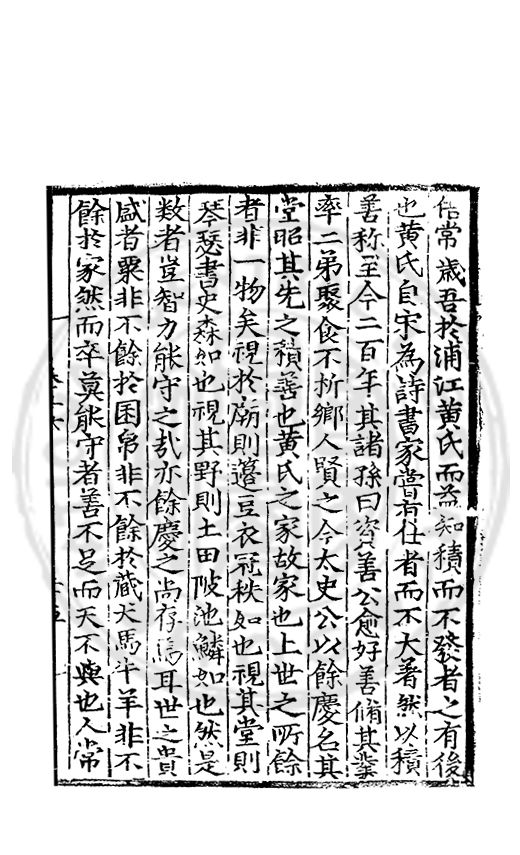 倍常歲吾於浦江黄氏而益知積而不發者之有後
也黄氏自宋為詩書家嘗有仕者而不大著然以積
善称至今二百年其諸孫曰資善公愈好善脩其業
率二弟聚食不析鄉人賢之今太史公以餘慶名其
堂昭其先之積善也黄氏之家故家也上世之所餘
者非一物矣視於廟則籩豆衣冠秩如也視其堂則
琴瑟書史森如也視其野則土田陂池鱗如也然是
数者豈智力能守之㢤亦餘慶之尚存焉耳世之貴
盛者粟非不餘於囷帛非不餘於藏犬馬牛羊非不
餘於家然而卒莫能守者善不足而天不與也人常